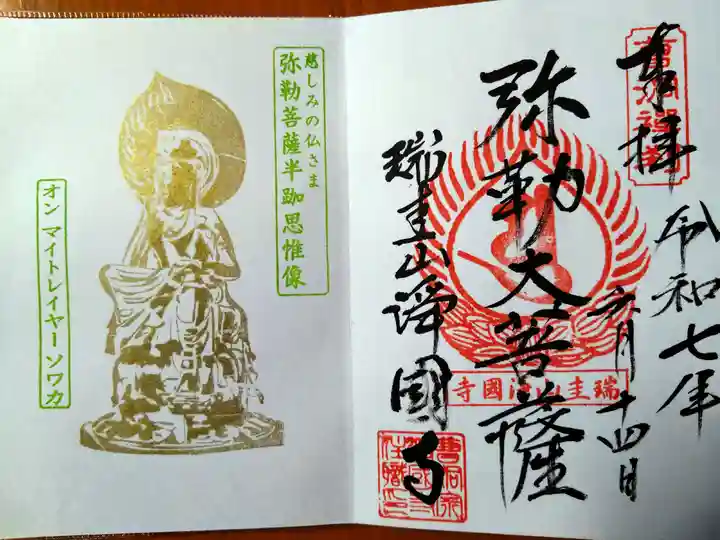 慈しみの仏さま
弥勒菩薩半跏思惟像
オン マイトレイヤーソワカ
奉拝
令和七年
六月十四日
弥勒大菩薩
瑞圭山諦國寺